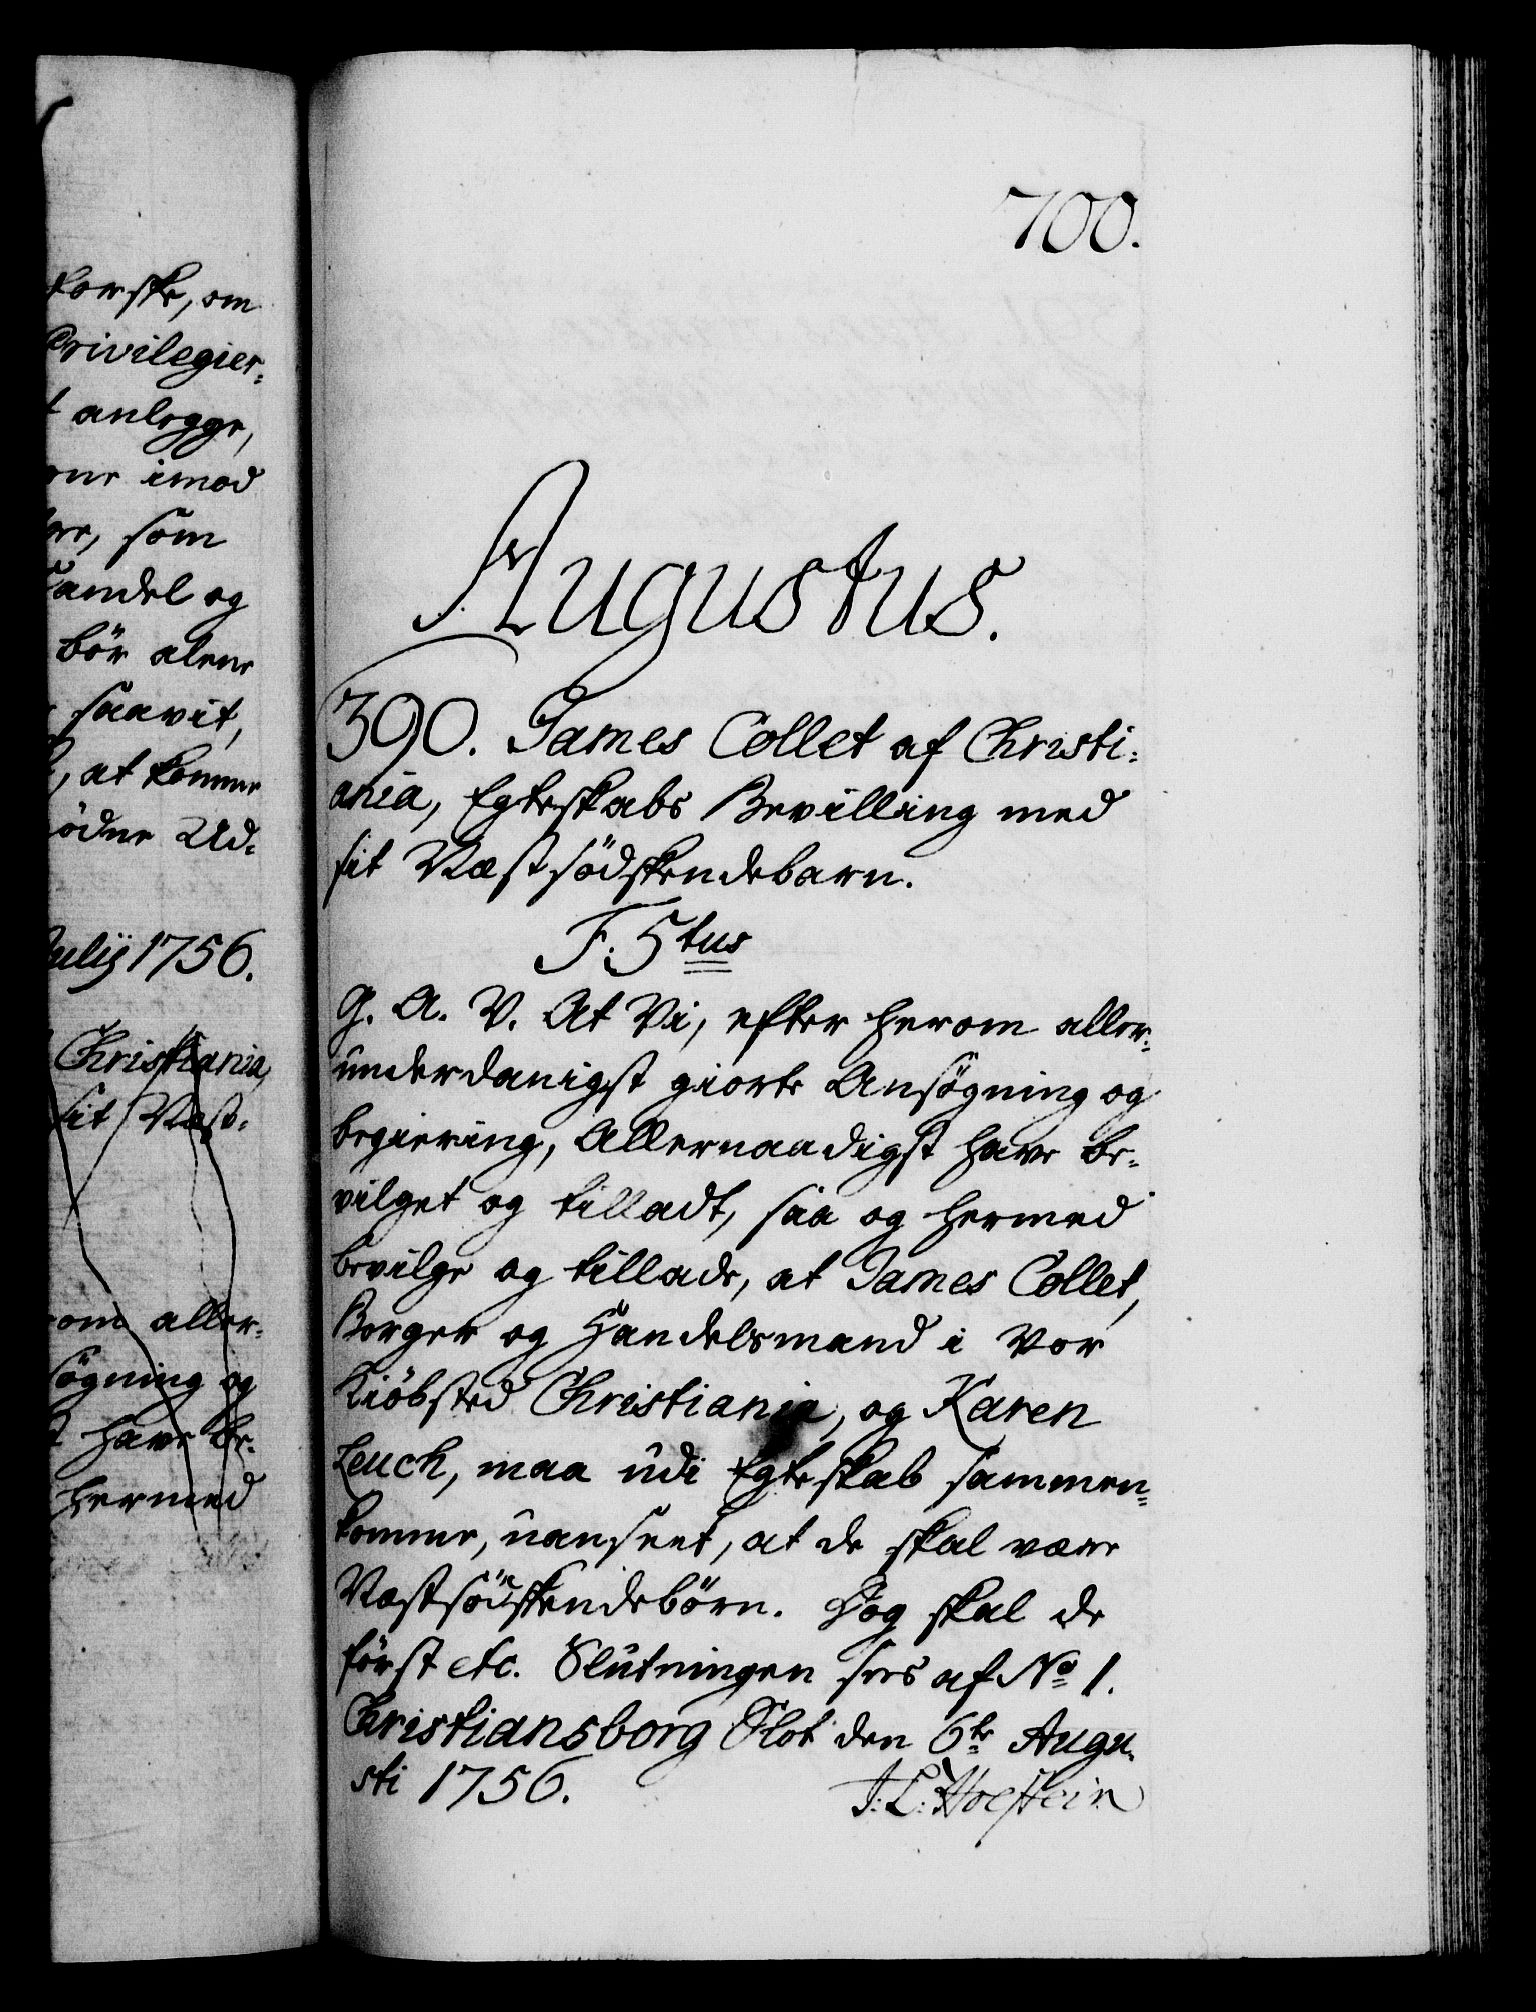 korske, om
Privilegier=
t anlegge,
erne imod
ere, som
Handel og
bör alene
saavit,
at komme
ödne Ud=
Julij 1756.
Christiania,
sit Næst=
om aller=
sögning og
have be=
hermed
700.
Augustus.
390. James Collet af Christi=
ania, Egteskabs Bevilling med
sit Næstsödskendebarn.
F. 5tus
G. A. V. At Vi, efter herom aller=
underdanigst giorte Ansøgning og
begiering, Allernaadigst have be=
vilget og tilladt, saa og hermed
bevilge og tillade, at James Collet,
Borger og Handelsmand i Vor
Kiöbsted Christiania, og Karen
Leuch, maa udi Egteskab sammen=
komme, uanseet, at de skal være
Næstsödskendebörn. Dog skal de
först etc. Slutningen sees af No 1.
Christiansborg Slot den 6te Augu=
sti 1756.
J: L: Holstein